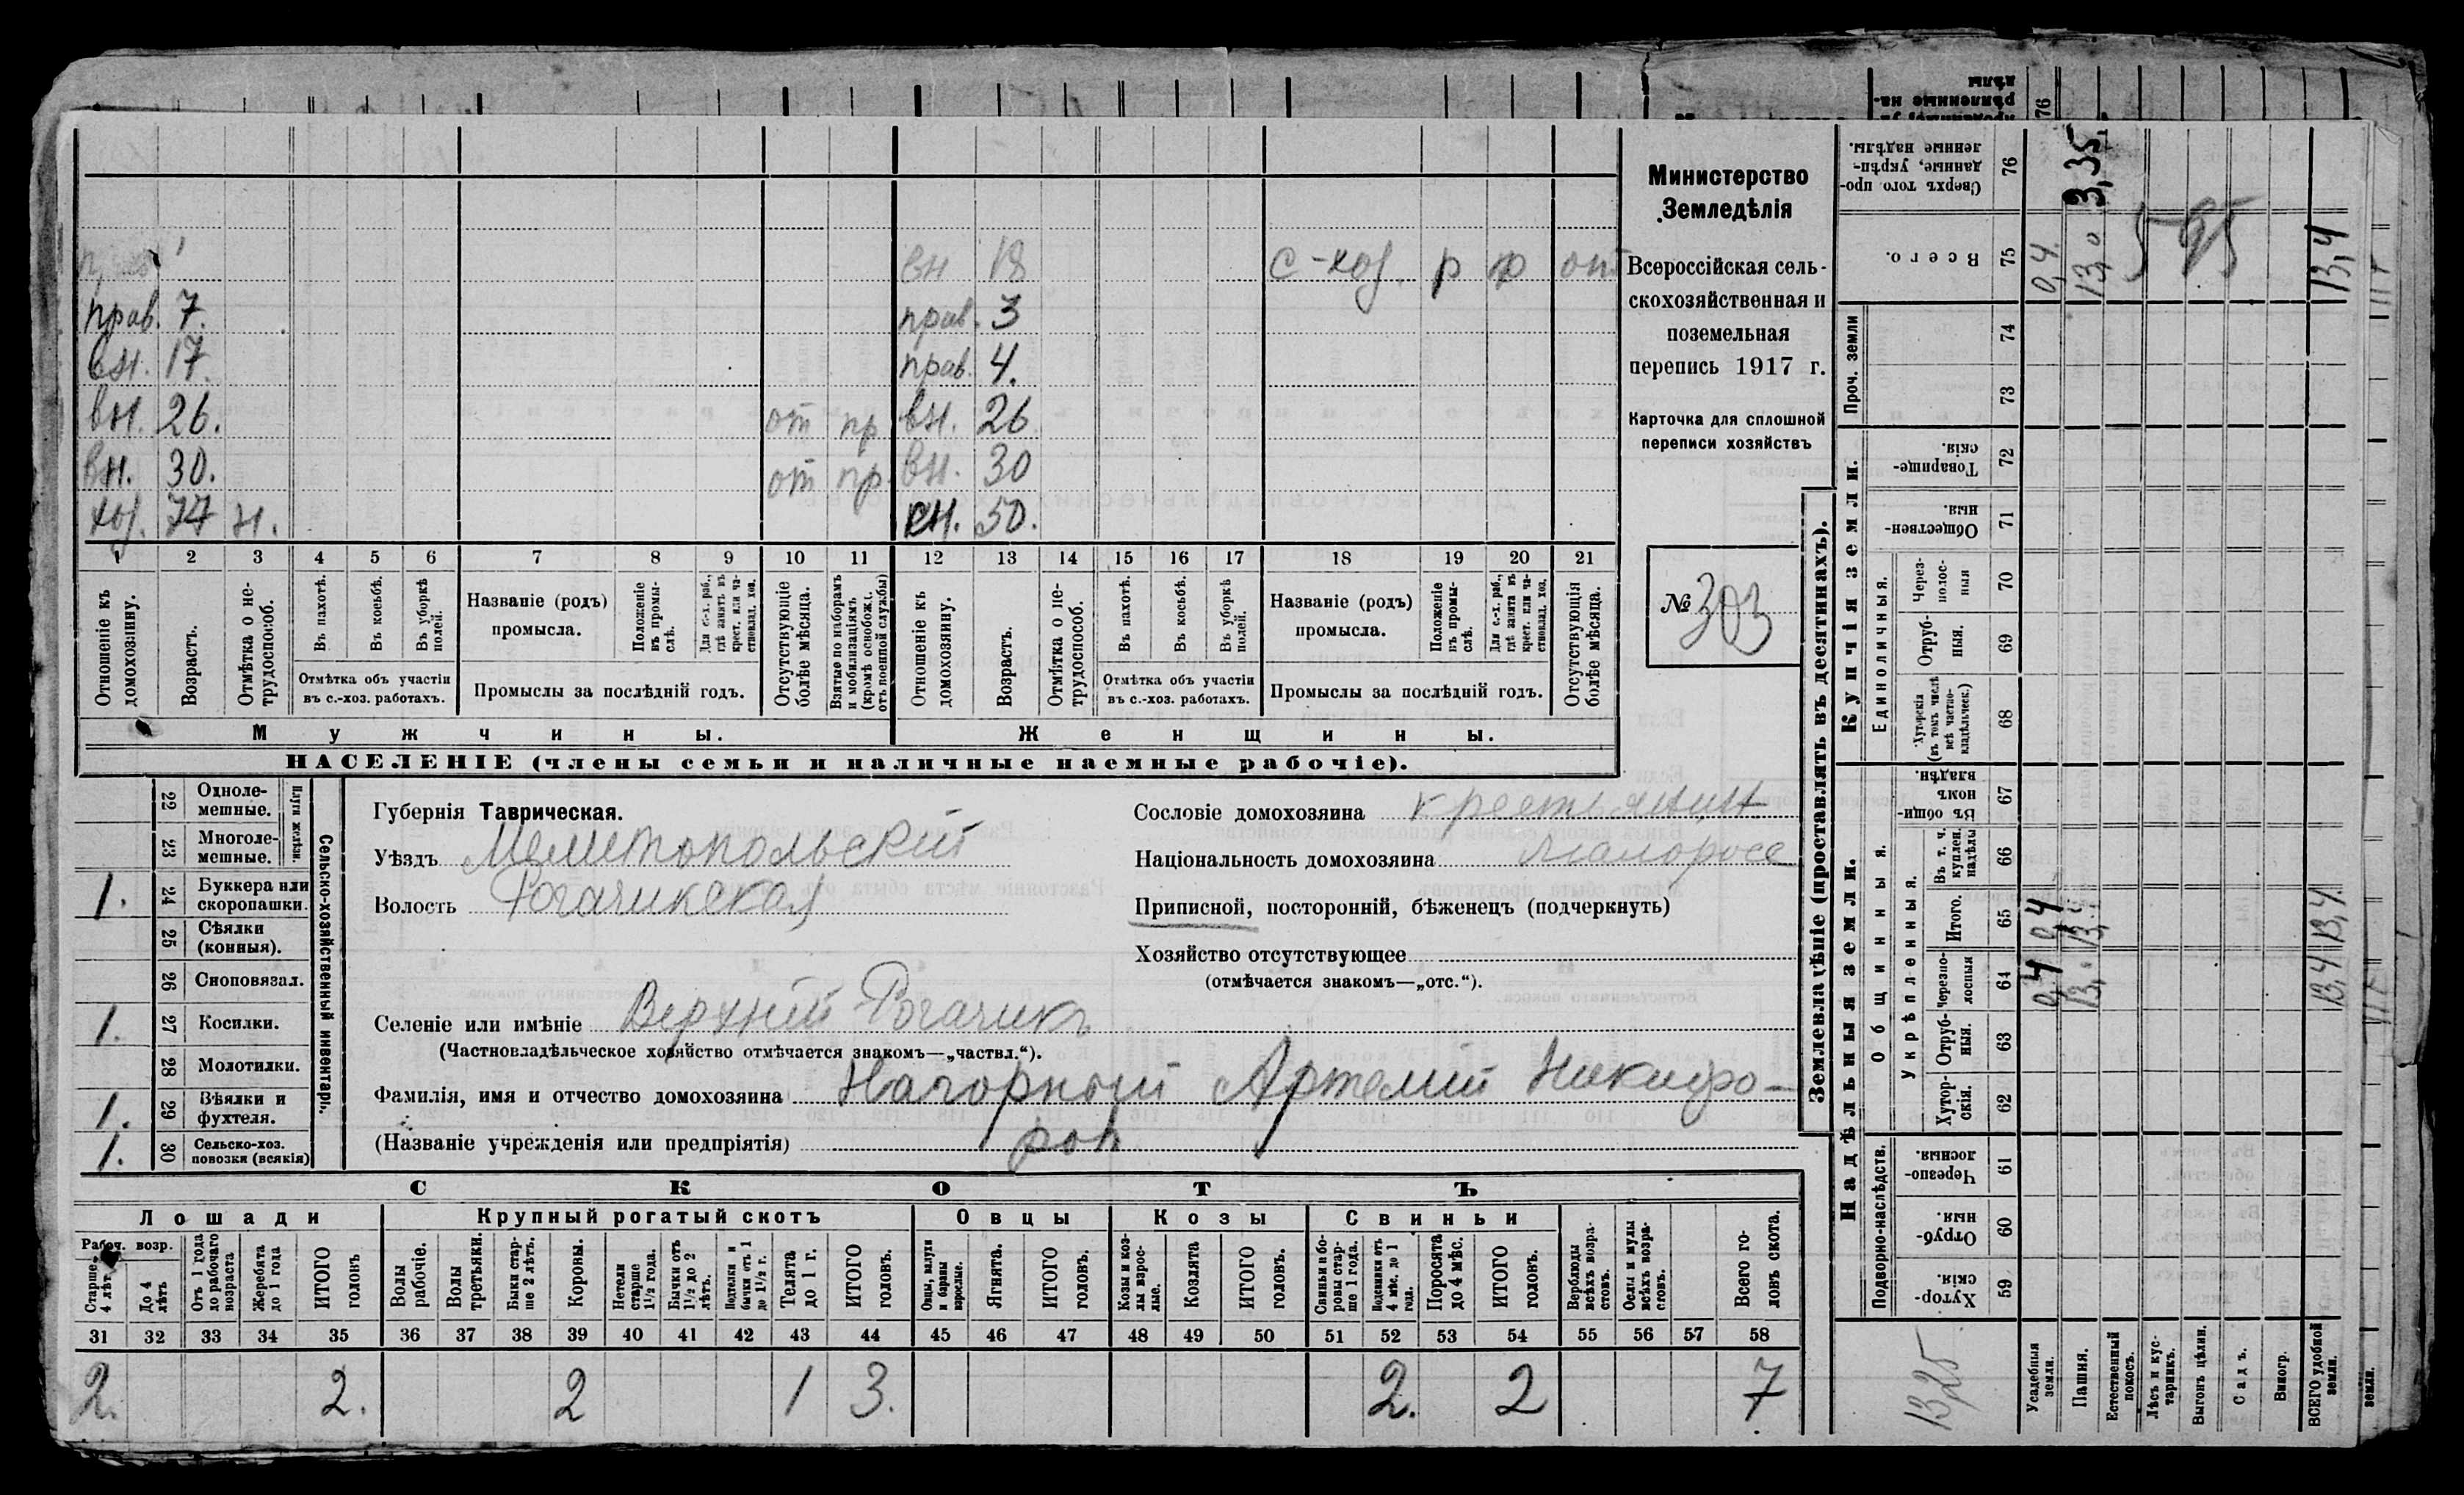 прав. 7.
вн. 17.
вн. 26. от пр.
вн. 30. от пр.
хоз. 77 н.
вн 18 с-хоз. р кр от
прав. 3
прав. 4.
вн. 26
вн. 30
сн. 50.
1 2 3 4 5 6 7 8 9 10 11 12 13 14 15 16 17 18 19 20 21
Отношеніе къ домохозяину.
Возрастъ.
Отмѣтка о нетрудоспособ.
Въ пахотѣ.
Въ косьбѣ.
Въ уборкѣ полей.
Отмѣтка объ участіи
въ с.-хоз. работахъ.
Названіе (родъ)
промысла.
Положеніе въ промыслѣ.
Для с.-х. раб., гдѣ занятъ въ крест. или частновлад. хоз.
Промыслы за послѣдній годъ.
Отсутствующіе болѣе мѣсяца.
Взятые по наборамъ и мобилизаціямъ (кромѣ освобожд. отъ военной службы)
Отношеніе къ домохозяину.
Возрастъ.
Отмѣтка о нетрудоспособ.
Въ пахотѣ.
Въ косьбѣ.
Въ уборкѣ полей.
Отмѣтка объ участіи
въ с.-хоз. работахъ.
Названіе (родъ)
промысла.
Положеніе въ промыслѣ.
Для с.-х. раб., гдѣ занята въ крест. или частновлад. хоз.
Промыслы за послѣдній годъ.
Отсутствующія болѣе мѣсяца.
Мужчины.
Женщины.
НАСЕЛЕНІЕ (члены семьи и наличные наемные рабочіе).
Министерство
Земледѣлія
Всероссійская сель-
скохозяйственная и
поземельная
перепись 1917 г.
Карточка для сплошной
переписи хозяйствъ
№ 303
Плуги желѣзн.
22 Одноле-
мешные.
23 Многоле-
мешные.
1. 24 Буккера или
скоропашки.
25 Сѣялки
(конныя).
26 Сноповязал.
1. 27 Косилки.
28 Молотилки.
1. 29 Вѣялки и
фухтеля.
1. 30 Сельско-хоз.
повозки (всякія)
Сельско-хозяйственный инвентарь.
Губернія Таврическая.
Уѣздъ Мелитопольский
Волость Рогачикская
Селеніе или имѣніе Верхний Рогачикъ
(Частновладѣльческое хозяйство отмѣчается знакомъ—„частвл.“).
Фамилія, имя и отчество домохозяина Нагорный Артемий Никифо-
(Названіе учрежденія или предпріятія) ров
Сословіе домохозяина крестьянин
Національность домохозяина малоросс
Приписной, посторонній, бѣженецъ (подчеркнуть)
Хозяйство отсутствующее
(отмѣчается знакомъ—„отс.“).
СКОТЪ
Лошади
Крупный рогатый скотъ
Овцы
Козы
Свиньи
Рабоч. возр.
Старше 4 лѣт
До 4 лѣтъ
Отъ 1 года до рабочаго возраста
Жеребята до 1 года
ИТОГО головъ
Волы рабочіе.
Волы третьяки.
Быки старше 2 лѣтъ.
Коровы.
Нетели старше 1½ года.
Бычки отъ 1½ до 2 лѣтъ.
Подтелки и бычки отъ 1 до 1½ г.
Телята до 1 г.
ИТОГО головъ.
Овцы, валухи и бараны взрослые.
Ягнята.
ИТОГО головъ.
Козы и козлы взрослые.
Козлята
ИТОГО головъ.
Свиньи и боровы старше 1 года.
Подсвинки отъ 4 мѣс. до 1 года.
Поросята до 4 мѣс.
ИТОГО головъ.
Верблюды всѣхъ возрастовъ.
Ослы и мулы всѣхъ возрастовъ.
Всего головъ скота.
31 32 33 34 35 36 37 38 39 40 41 42 43 44 45 46 47 48 49 50 51 52 53 54 55 56 57 58
2. 2. 2 1 3. 2. 2 7
Землевладѣніе (проставлять въ десятинахъ).
Надѣльныя земли.
Купчія земли.
Проч. земли
Подворно-наслѣдств.
Общинныя.
Укрѣпленныя.
Единоличныя.
Сверхъ того проданные, укрѣпленные надѣлы. 76
Всего. 75
74
73
Товарищескія. 72
Общественныя. 71
Черезполосныя 70
Отрубныя. 69
Хуторскія (въ томъ числѣ всѣ частновладѣльческ.) 68
Въ общинномъ владѣн. 67
Въ т. ч. куплен. надѣлы 66
Итого. 65
Черезполосныя 64
Отрубныя. 63
Хуторскія. 62
Черезполосныя. 61
Отрубныя. 60
Хуторскія. 59
Усадебныя земли. 0,4 0,4 0,4
Пашня. 13,0 13,0 13,0 3,35
Естественный покосъ.
Лѣсъ и кустарникъ.
Выгонъ цѣлин.
Садъ.
Виногр.
ВСЕГО удобной земли. 13,4 13,4 13,4
5 95
1325
земли.
76